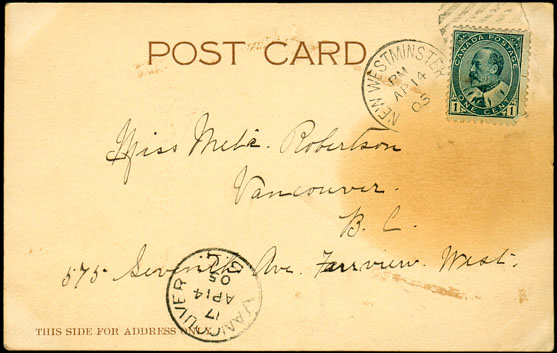 POST CARD
NEW WESTMINSTER
PM
AP 14
05
CANADA POSTAGE
1 ONE CENT 1
Miss Meta Robertson
Vancouver.
B. C.
575 Seventh Ave. Fairview. West.
VANCOUVER
17
AP 14
05
THIS SIDE FOR ADDRESS ONLY